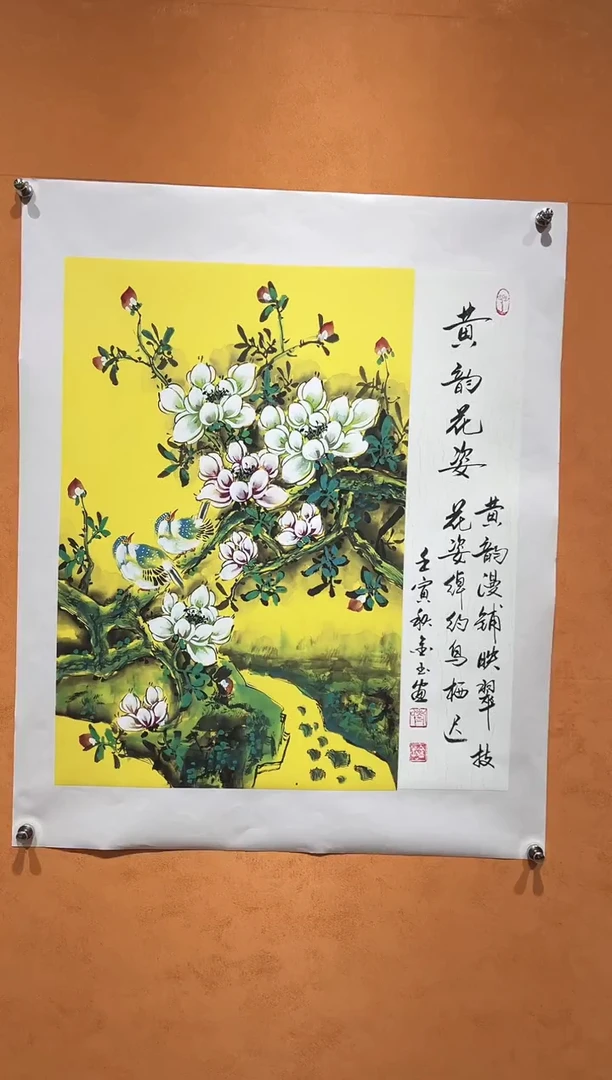 黄韵花姿
黄韵漫铺映翠枝
花姿绰约鸟栖迟
壬寅秋金玉画